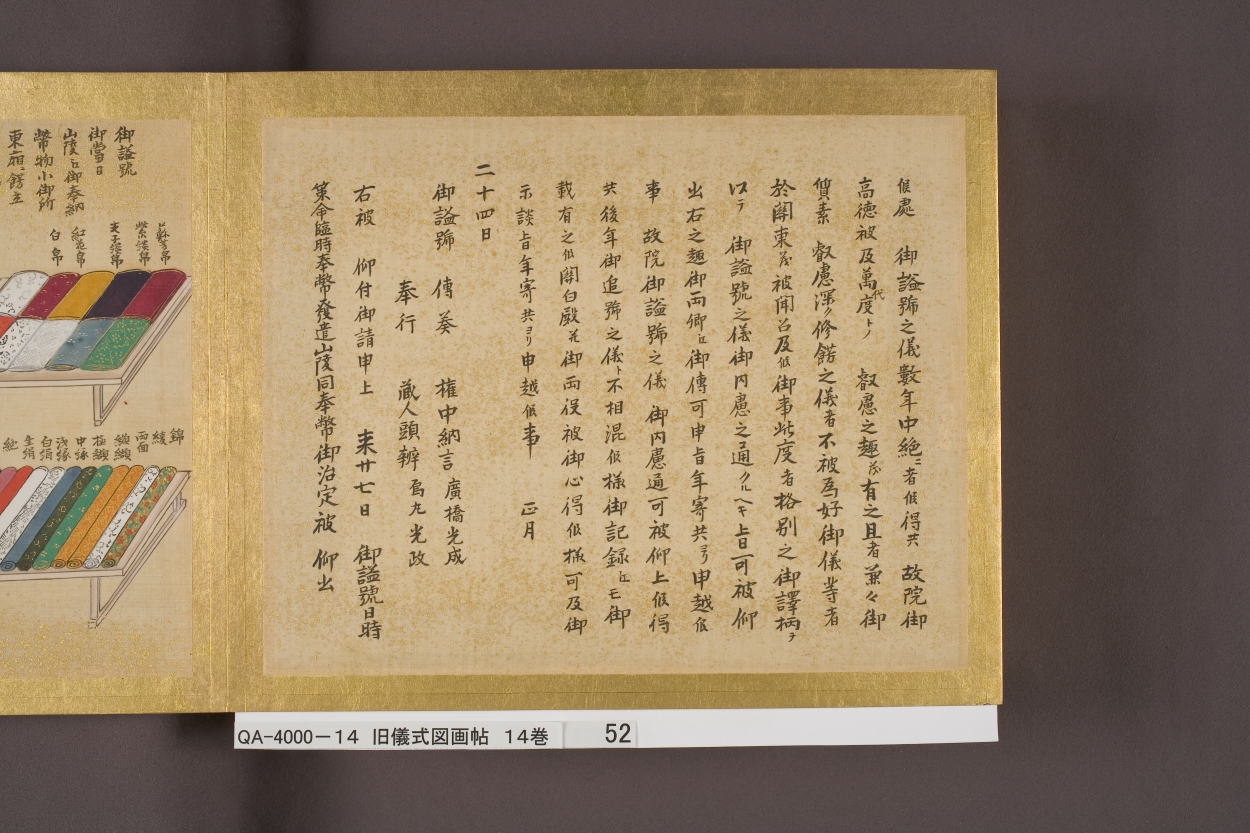 候處　御謚號之儀數年中絶ニ者候得共　故院御
高德被及萬代度トノ　叡慮之趣茂有之且者兼々御
質素　叡慮深ク修餝之儀者不被為好御儀等者
於関東茂被聞召及候御事此度者格別之御譯柄ヲ
以テ　御謚號之儀御内慮之通クルヘキ上旨可被　仰
出右之趣御両卿江御傳可申旨年寄共ヨリ申越候
事　故院御謚號之儀　御内慮通可被仰上候得
共後年御追號之儀ト不相混候様御記録江モ御
載有之候関白殿并御両役被御心得候様可及御
示談旨年寄共ヨリ申越候事　正月
二十四日
御謚號　傳奏　權中納言廣橋光成
奉行　藏人頭辨烏丸光政
右被　仰付御請申上　来廿七日　御謚號日時
策命臨時奉幣發遣山陵同奉幣御治定被　仰出
御謚號
御當日
山陵江御奉納
幣物小御所
東廂ニ餝立
蘇芳帛
紫淡帛
天子緂帛
紅染帛
白帛
錦
綾
両面
纐纈
極纈
中縁
浅縁
白絹
生絹
絁
QA-4000-14　旧儀式図画帖　14巻　52